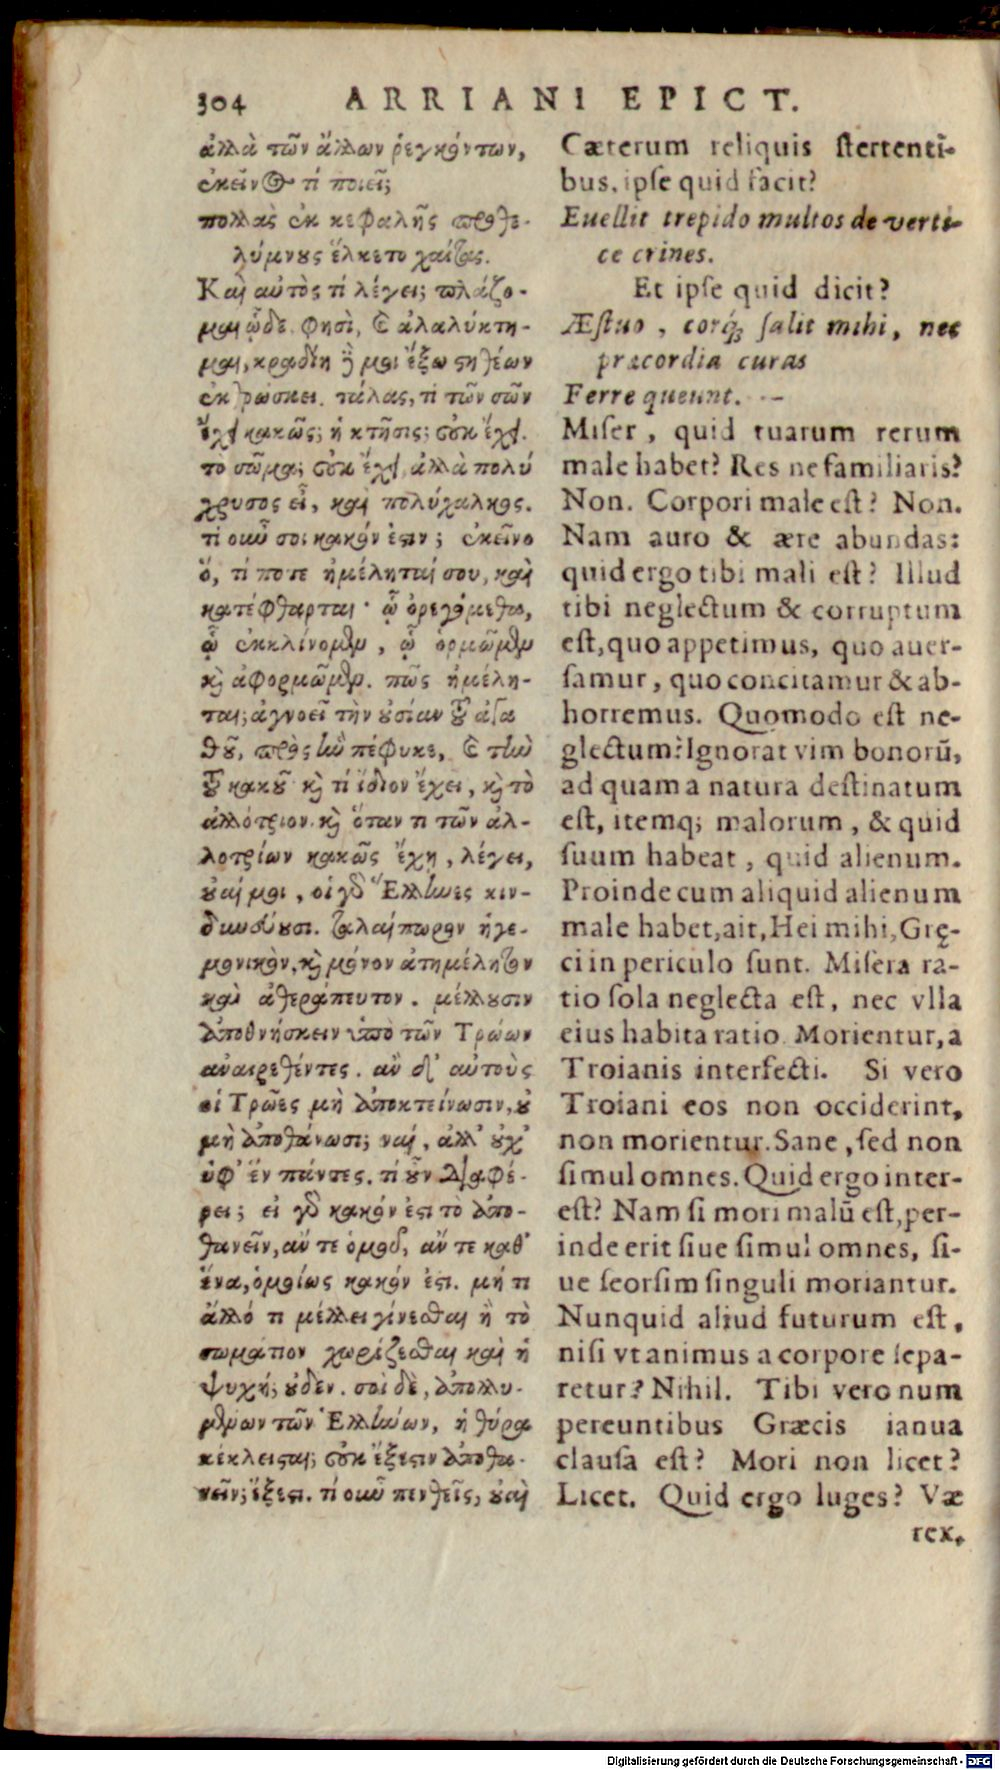 304 ARRIANI EPICT.
ἀλλὰ τῶν ἄλλων ῥεγκόντων,
ἐκεῖνος τί ποιεῖ;
πολλὰς ἐκ κεφαλῆς προθε-
λύμνους ἕλκετο χαίτας.
Καὶ αὐτὸς τί λέγει; πλάζο-
μαι ὧδε φησὶ, καὶ ἀλαλύκτη-
μαι, κραδίη δέ μοι ἔξω στηθέων
ἐκθρώσκει. τάλας, τί τῶν σῶν
ἔχει κακῶς; ἡ κτῆσις; οὐκ ἔχει.
τὸ σῶμα; οὐκ ἔχει, ἀλλὰ πολύ
χρυσος εἶ, καὶ πολύχαλκος.
τί οὖν σοι κακόν ἐστιν; ἐκεῖνο
ὅ, τι ποτε ἠμέληταί σου, καὶ
κατέφθαρται· ᾧ ὀρεγόμεθα,
ᾧ ἐκκλίνομεν, ᾧ ὁρμῶμεν
καὶ ἀφορμῶμεν. πῶς ἠμέλη-
ται; ἀγνοεῖ τὴν οὐσίαν τοῦ ἀγα
θοῦ, πρὸς ἣν πέφυκε, καὶ τὴν
τοῦ κακοῦ καὶ τί ἴδιον ἔχει, καὶ τὸ
ἀλλότριον. καὶ ὅταν τι τῶν ἀλ-
λοτρίων κακῶς ἔχῃ, λέγει,
οὐαί μοι, οἱ γὰρ Ἕλληνες κιν-
δυνεύουσι. ταλαίπωρον ἡγε-
μονικὸν, καὶ μόνον ἀτημέλητον
καὶ ἀθεράπευτον. μέλλουσιν
ἀποθνήσκειν ὑπὸ τῶν Τρώων
ἀναιρεθέντες. ἂν δ' αὐτοὺς
οἱ Τρῶες μὴ ἀποκτείνωσιν, οὐ
μὴ ἀποθάνωσι; ναί, ἀλλ' οὐχ'
ὑφ' ἓν πάντες. τί οὖν διαφέ-
ρει; εἰ γὰρ κακόν ἐστι τὸ ἀπο-
θανεῖν, ἄν τε ὁμοῦ, ἄν τε καθ'
ἕνα, ὁμοίως κακόν ἐστι. μή τι
ἄλλό τι μέλλει γίνεσθαι ἢ τὸ
σωμάτιον χωρίζεσθαι καὶ ἡ
ψυχή; οὐδεν. σοὶ δὲ, ἀπολλυ-
μένων τῶν Ἑλλήνων, ἡ θύρα
κέκλεισται; οὐκ ἔξεστιν ἀποθα-
νεῖν; ἔξεστι. τί οὖν πενθεῖς, οὐαὶ
Cæterum reliquis stertenti-
bus, ipse quid facit?
Euellit trepido multos de verti-
ce crines.
Et ipse quid dicit?
Æstuo, corq́; salit mihi, nec
præcordia curas
Ferre queunt. --
Miser, quid tuarum rerum
male habet? Res ne familiaris?
Non. Corpori male est? Non.
Nam auro & ære abundas:
quid ergo tibi mali est? Illud
tibi neglectum & corruptum
est, quo appetimus, quo auer-
samur, quo concitamur & ab-
horremus. Quomodo est ne-
glectum? Ignorat vim bonorũ,
ad quam a natura destinatum
est, itemq; malorum, & quid
suum habeat, quid alienum.
Proinde cum aliquid alienum
male habet, ait, Hei mihi, Grę-
ci in periculo sunt. Misera ra-
tio sola neglecta est, nec vlla
eius habita ratio. Morientur, a
Troianis interfecti. Si vero
Troiani eos non occiderint,
non morientur. Sane, sed non
simul omnes. Quid ergo inter-
est? Nam si mori malũ est, per-
inde erit siue simul omnes, si-
ue seorsim singuli moriantur.
Nunquid aliud futurum est,
nisi vt animus a corpore sepa-
retur? Nihil. Tibi vero num
pereuntibus Græcis ianua
clausa est? Mori non licet?
Licet. Quid ergo luges? Væ
rex,
Digitalisierung gefördert durch die Deutsche Forschungsgemeinschaft - DFG